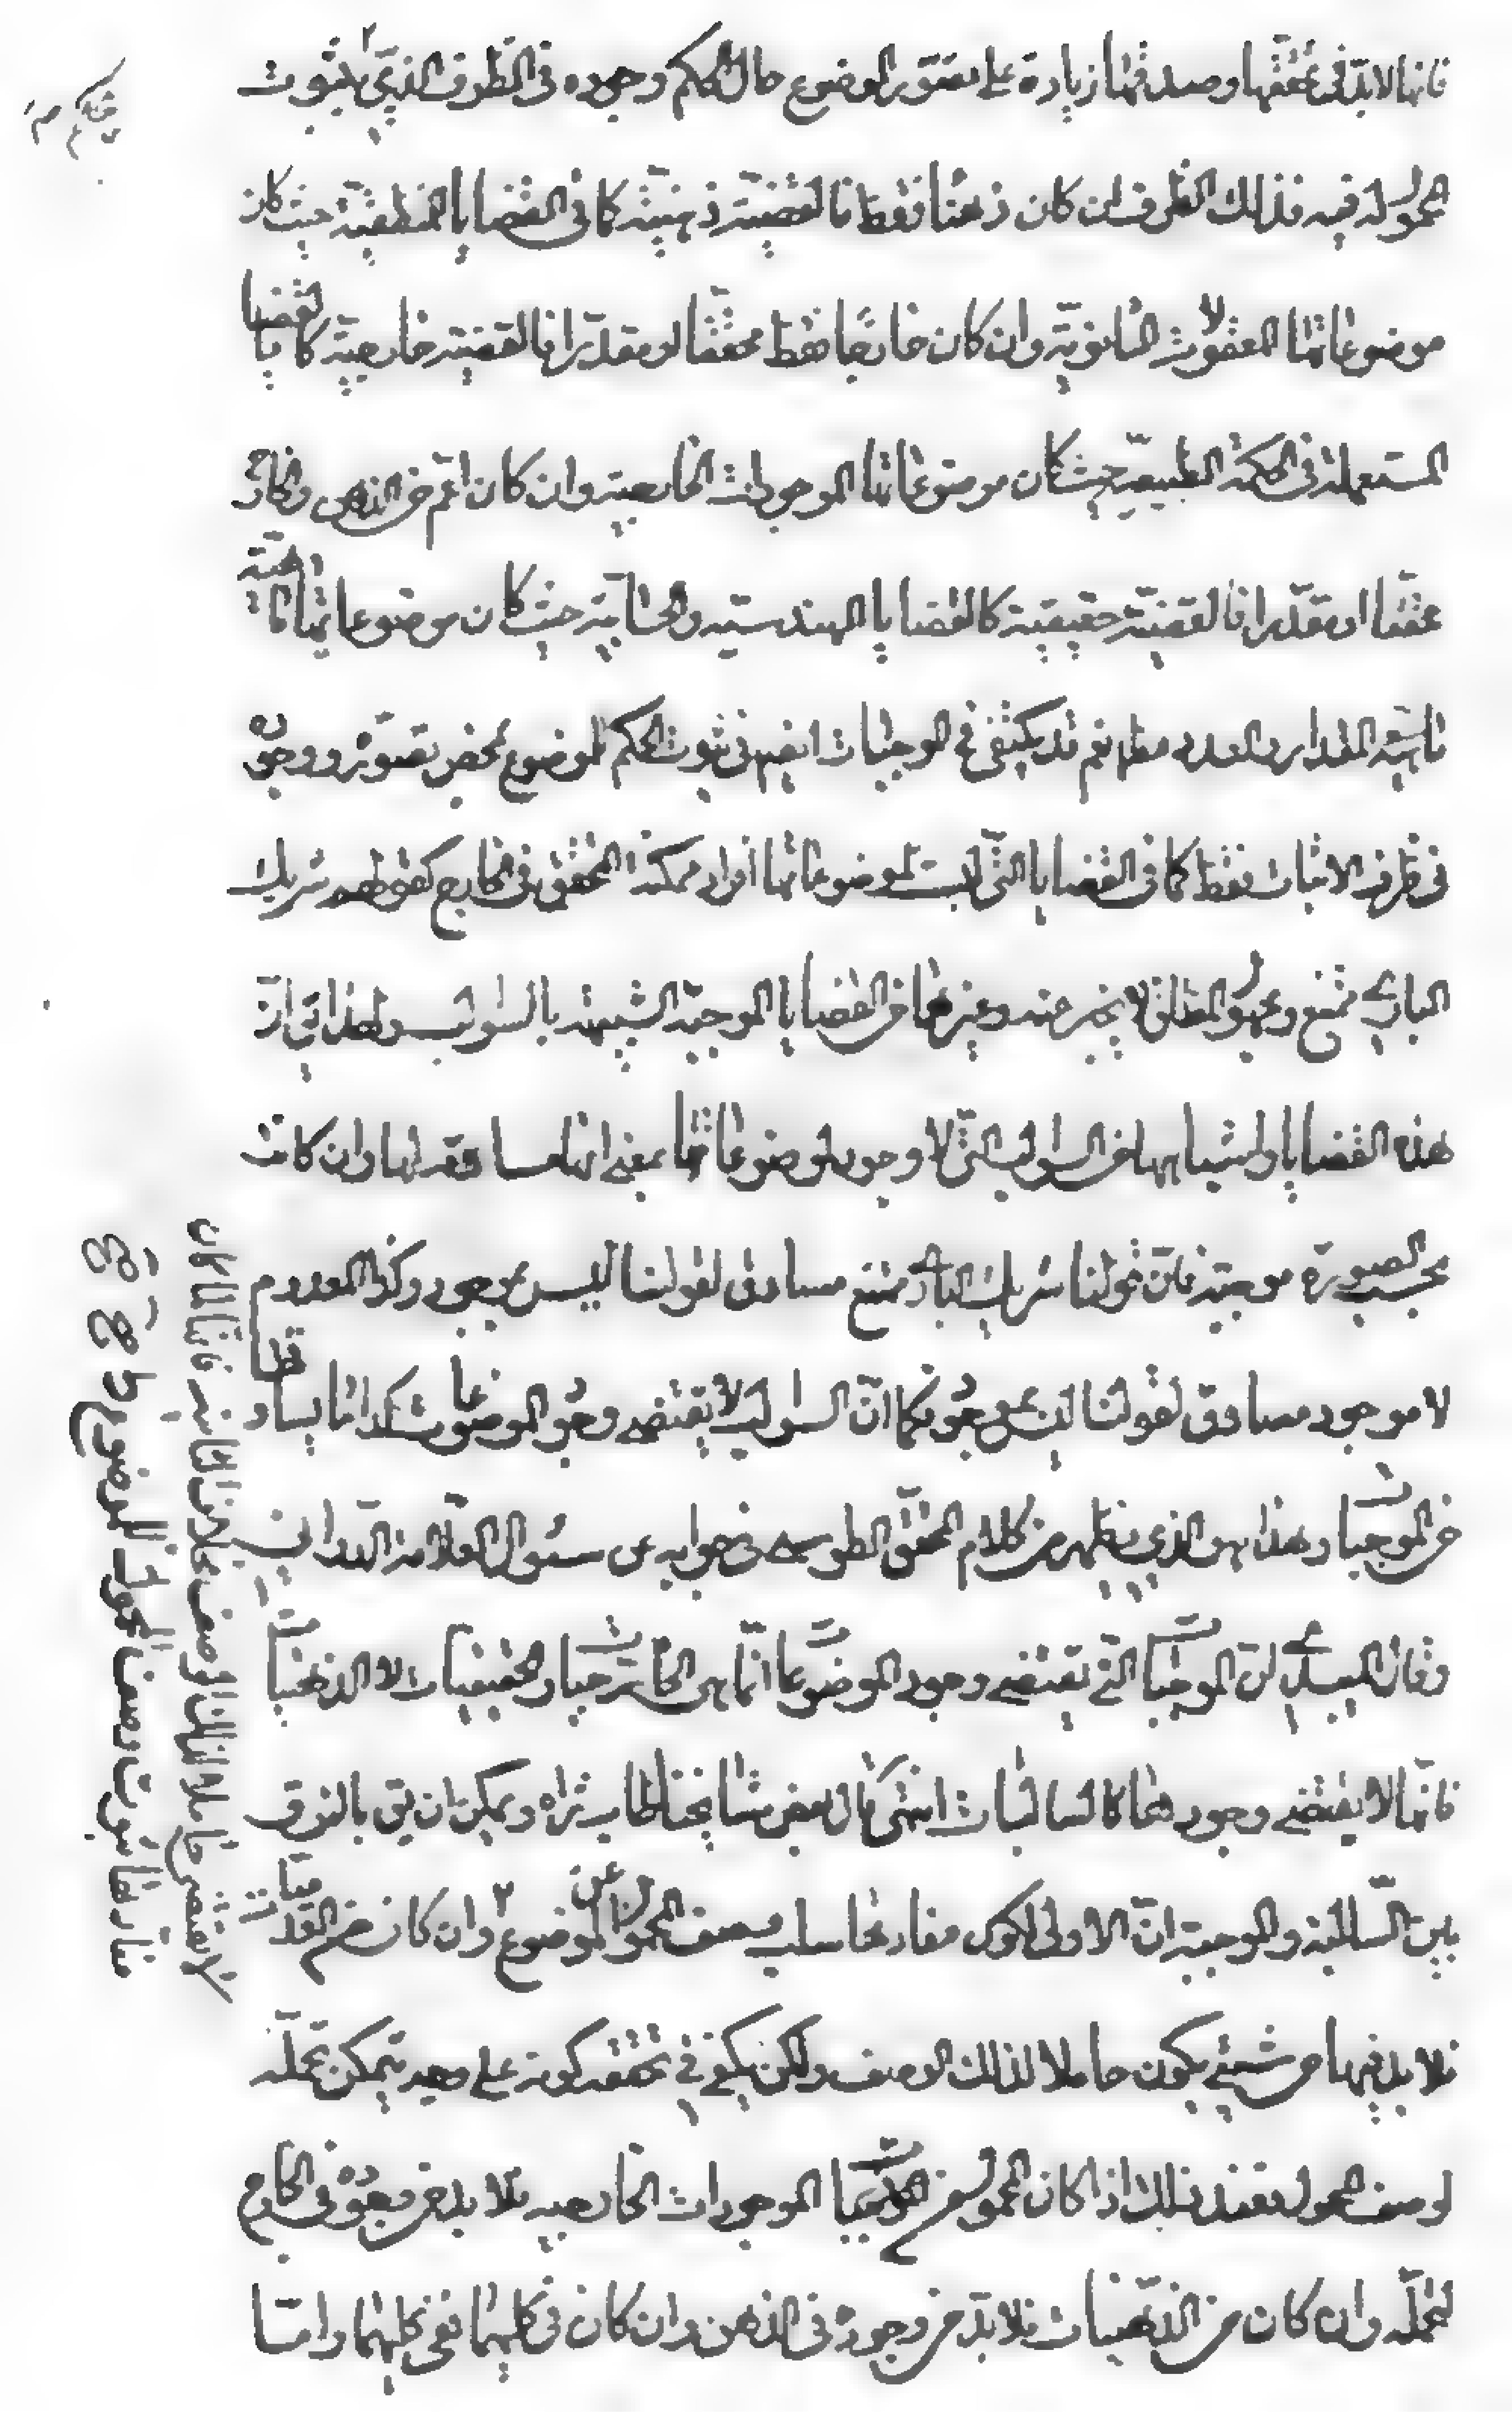 فانها لابد في تحققها وصدقها زيادة على تصور الموضوع حال الحكم وجوده في الظرف الذي ثبوت
المحمول له فيه فذلك الظرف ان كان ذهنا فقط فالقضية ذهنية كما في القضايا المنطقية حيث كان
موضوعاتها المعقولات الثانوية وان كان خارجا فقط محققا او مقدرا فالقضية خارجية كالقضايا
المستعملة في الحكمة الطبيعية حيث كان موضوعاتها الموجودات الخارجية وان كان اعم من الذهن والخارج
محققا او مقدرا فالقضية حقيقية كالقضايا الهندسية والحسابية حيث كان موضوعاتها
المقدار والعدد مطلقا نعم قد يكتفى في الموجبات ايضا في ثبوت الحكم للموضوع بمحض تصوره ووجوده
في ظرف الاثبات فقط كما في القضايا التي ليست لموضوعاتها افراد ممكنة التحقق في الخارج كقولهم شريك
الباري ممتنع ومجهول المطلق لا يخبر عنه وغيرها من القضايا الموجبة الشبيهة بالسوالب ولهذا ان
هذه القضايا واشباهها من السوالب التي لا وجود لموضوعاتها بمعنى انها مساوقة لها وان كانت
بحسب الصورة موجبة فان قولنا شريك الباري ممتنع مساوق لقولنا ليس بموجود وكذا المعدوم
لا موجود مساوق لقولنا ليس بموجود فكما ان السوالب لا يقتضى وجود الموضوعات فكذا ما يساوقها
من الموجبات وهذا هو الذي يظهر من كلام المحقق الطوسي في جوابه عن سؤال العلامة
وقال ان الموجبات التي تقتضى وجود الموضوعات انما هي الخارجيات والحقيقيات لا الذهنيات
فانها لا يقتضى وجودها كالسالبات انتهى قال بعض مشايخنا طاب ثراه ويمكن ان يق بالفرق
بين السالبة والموجبة ان الاولى لكون مفادها سلب وصف المحمول عن الموضوع وان كان من
فلا بد فيها من شيء يكون حاملا لذلك الوصف ولكن يكفى في تحققه كونه على وجه يتمكن تحمله
لوصف المحمول فعند ذلك اذا كان المحمول من الموجودات الخارجية فلا بد من وجوده في الخارج
لتحمله وان كان من الذهنيات فلا بد من وجوده في الذهن وان كان في كليهما ففى كليهما واما